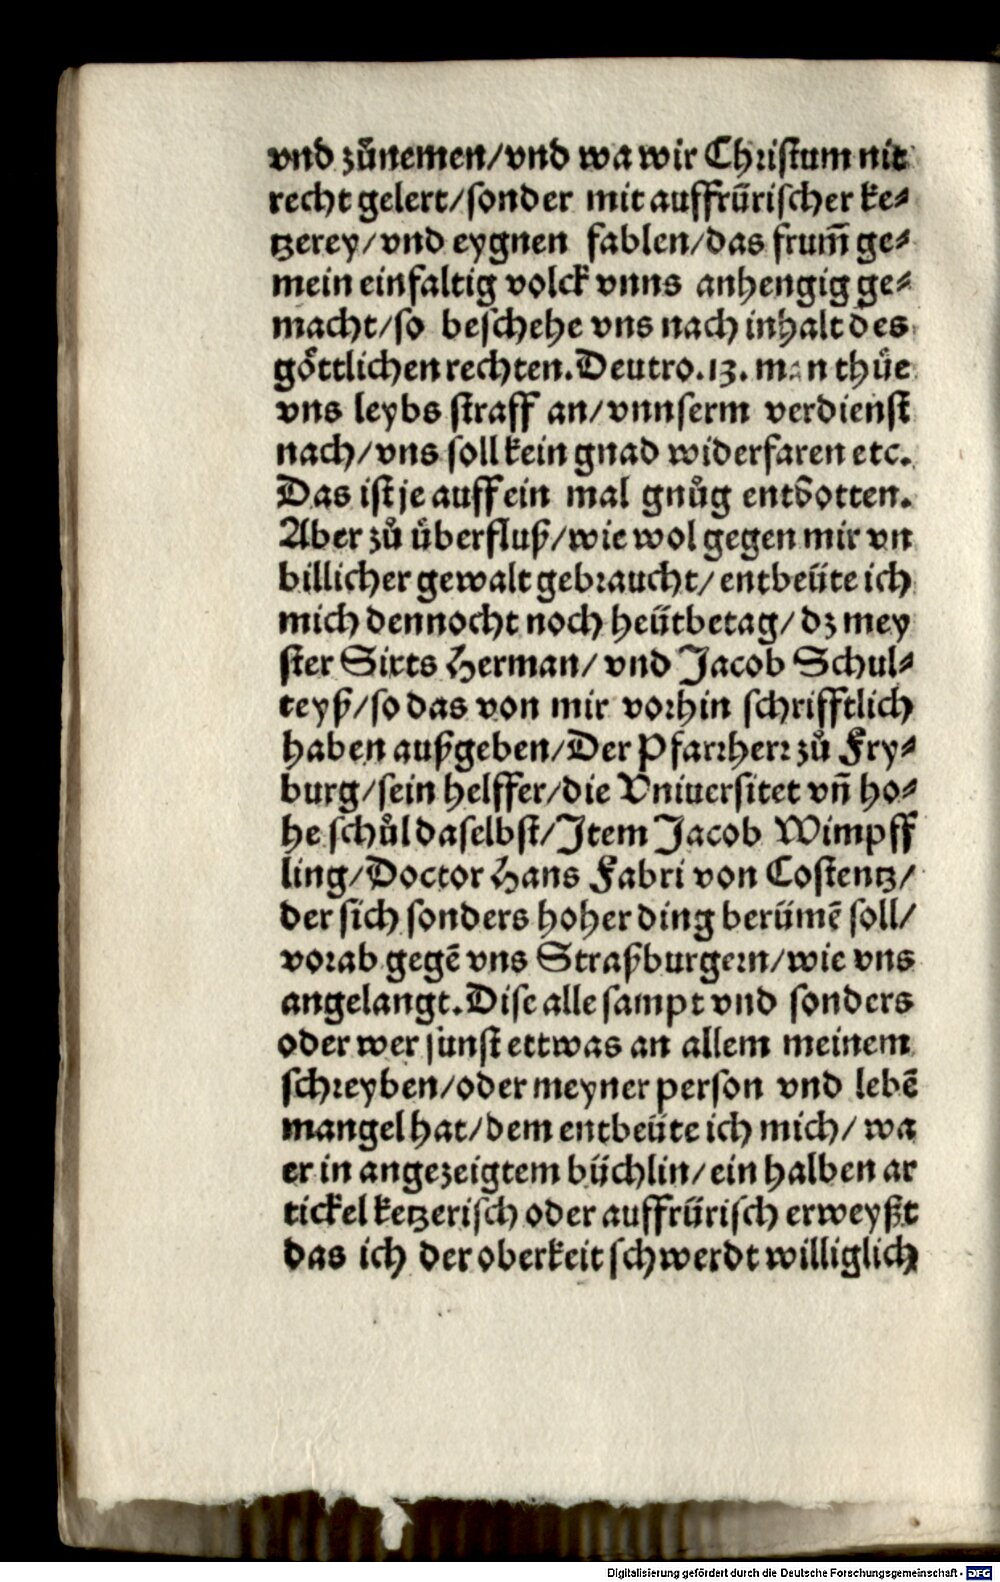 vnd zůnemen/vnd wa wir Christum nit
recht gelert/sonder mit auffrürischer ke⸗
tzerey/vnd eygnen fablen/das frum̃ ge⸗
mein einfaltig volck vnns anhengig ge⸗
macht/so beschehe vns nach inhalt des
göttlichen rechten. Deutro.13. man thüe
vns leybs straff an/vnnserm verdienst
nach/vns soll kein gnad widerfaren etc.
Das ist je auff ein mal gnůg entbotten.
Aber zů überfluß/wie wol gegen mir vn
billicher gewalt gebraucht/entbeüte ich
mich dennocht noch heütbetag/dz mey
ster Sixts Herman/vnd Jacob Schul⸗
teyß/so das von mir vorhin schrifftlich
haben außgeben/Der Pfarrherr zů Fry⸗
burg/sein helffer/die Vniuersitet vñ ho⸗
he schůl daselbst/Item Jacob Wimpff
ling/Doctor Hans Fabri von Costentz/
der sich sonders hoher ding berümẽ soll/
vorab gegẽ vns Straßburgern/wie vns
angelangt. Dise alle sampt vnd sonders
oder wer sunst ettwas an allem meinem
schreyben/oder meyner person vnd lebẽ
mangel hat/dem entbeüte ich mich/wa
er in angezeigtem büchlin/ein halben ar
tickel ketzerisch oder auffrürisch erweyßt
das ich der oberkeit schwerdt williglich
Digitalisierung gefördert durch die Deutsche Forschungsgemeinschaft - DFG